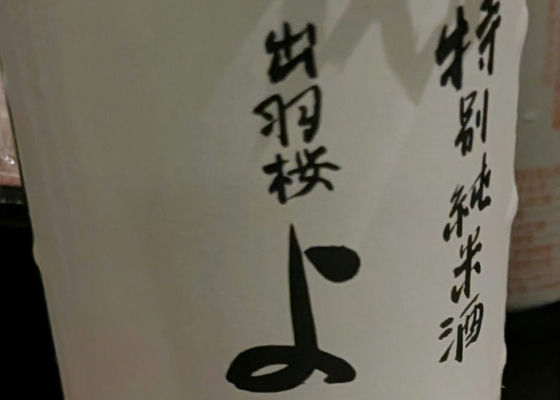 特別純米酒
出羽桜
よ